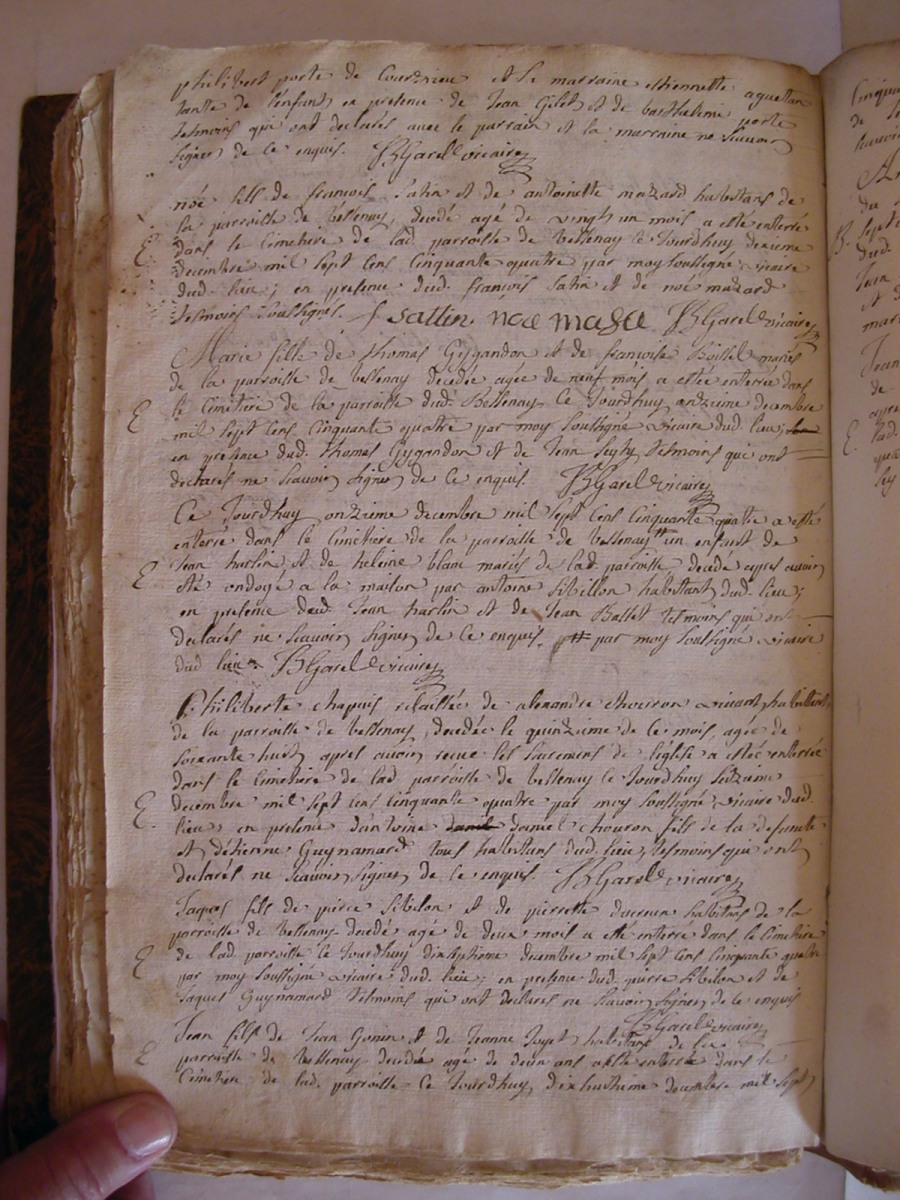 philibert porte de Courzieu et la marraine etiennette aguettan
tante de l'enfant, en presence de Jean Gilet et de barthelemi porte
tesmoins qui ont declarés avec le parrain et la marraine ne scavoir
signer de ce enquis. BGarel vicaire
noé fils de françois Satin et de antoinette mazard habitans de
la parroisse de bessenay, decedé agé de vingt un mois a esté enterré
E dans le Cimetiere de lad. parroisse de bessenay ce Jourdhuy dixieme
decembre mil sept cens cinquante quatre par moy soussigné vicaire
dud. lieu; en presence dud. françois Satin et de noé mazard
tesmoins soussignés. f sattin noe masa BGarel vicaire
Marie fille de thomas Gygandon et de françoise Boissel mariés
de la parroisse de bessenay decedée agée de neuf mois a estée enterrée dans
E le Cimetiere de la parroisse dud. Bessenay ce Jourdhuy onzieme decembre
mil sept cens cinquante quatre par moy soussigné vicaire dud. lieu;
en presence dud. thomas Gygandon et de Jean tesmoins qui ont
declarés ne scavoir signer de ce enquis. BGarel vicaire
Ce Jourdhuy onzieme decembre mil sept cens cinquante quatre a esté
enterré dans le Cimetiere de la parroisse de bessenay un enfant de
Jean harlin et de heleine blanc mariés de lad. parroisse, decedé apres avoir
E eté ondoyé a la maison par antoine Sibillon habitant dud. lieu;
en presence dud. Jean harlin et de Jean Ballet tesmoins qui ont
declarés ne scavoir signer de ce enquis. par moy soussigné vicaire
dud. lieu. BGarel vicaire
Philiberte chapuis relaissée de alexandre chouron vivant habitant
de la parroisse de bessenay, decedée le quinzieme de ce mois, agée de
soixante huit, apres avoir receue les sacremens de l'église a estée enterrée
dans le Cimetiere de lad. parroisse de bessenay ce Jourdhuy seizieme
E. decembre mil sept cens cinquante quatre par moy soussigné vicaire dud.
lieu; en presence d'antoine daniel chouron fils de la defunte
et d'etienne Guynamard tous habitans dud. lieu, tesmoins qui ont
declarés ne scavoir signer de ce enquis. BGarel vicaire
Jaques fils de pierre Sibilon et de pierrette ducreux habitans de la
parroisse de bessenay decedé agé de deux mois a eté enterré dans le Cimetiere
E de lad. parroisse ce Jourdhuy dixseptieme decembre mil sept cens cinquante quatre
par moy soussigné vicaire dud. lieu; en presence dud. pierre Sibilon et de
Jaques Guynamard tesmoins qui ont declarés ne scavoir signer de ce enquis
BGarel vicaire
Jean fils de Jean Gonin et de Jeanne habitans de la
E parroisse de bessenay decedé agé de deux ans a esté enterré dans le
Cimetiere de lad. parroisse ce Jourdhuy dixhuitieme decembre mil sept